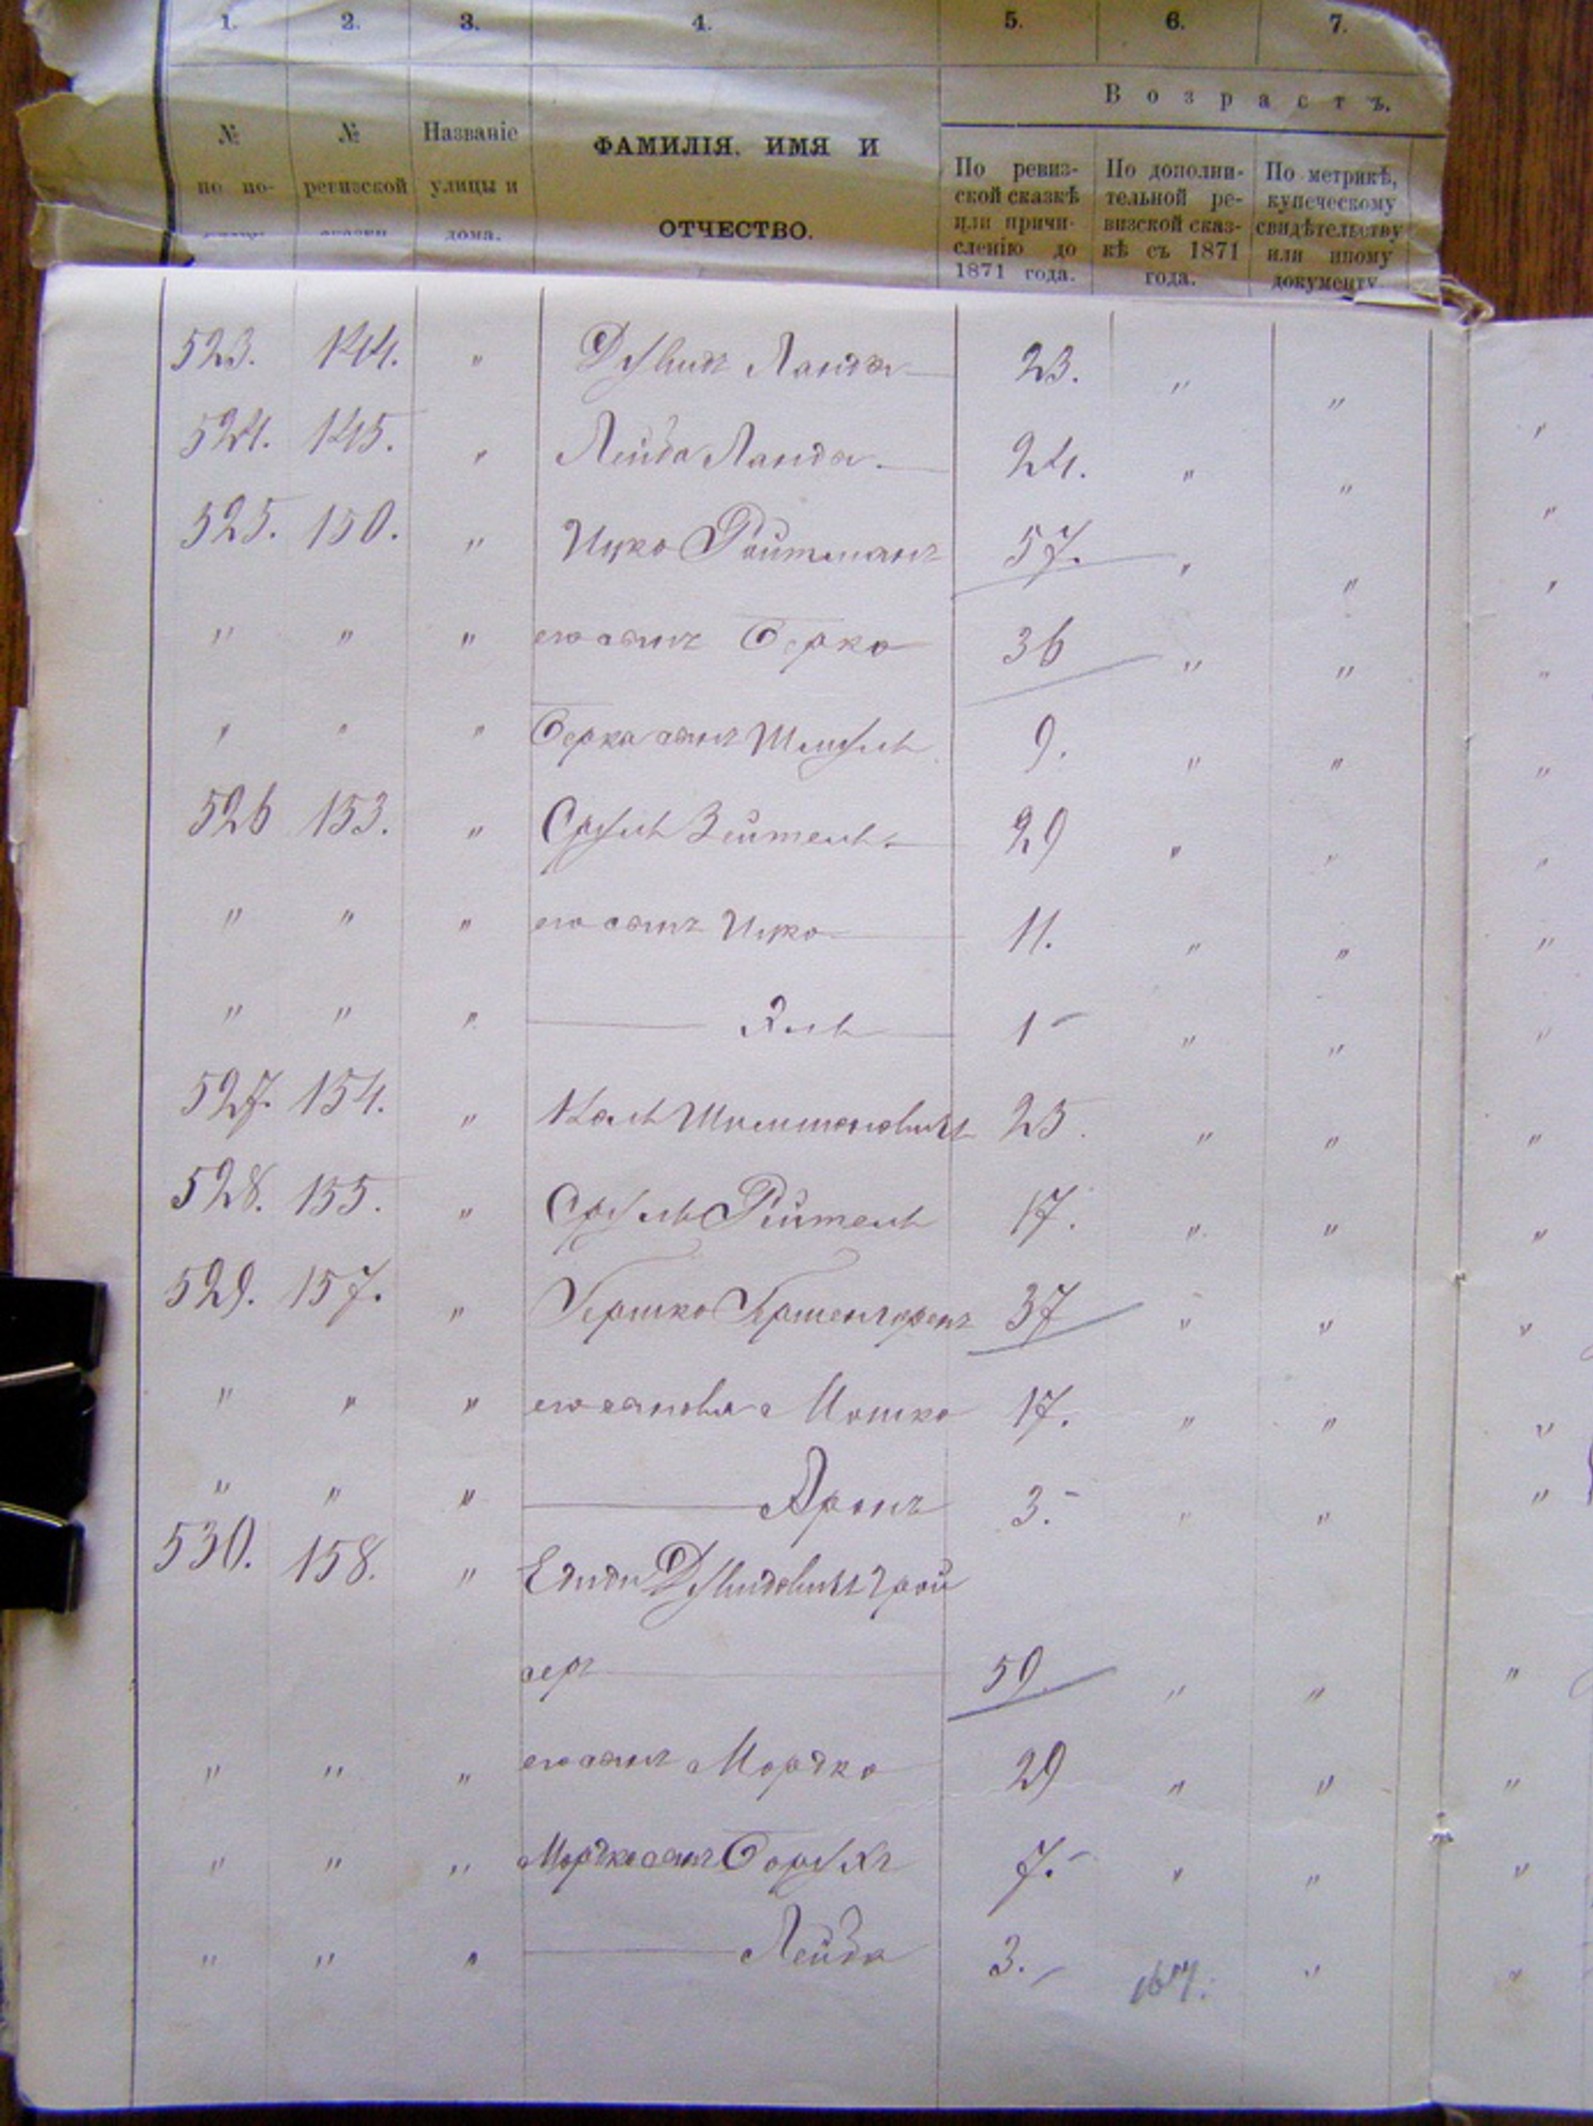 1. 2. 3. 4. 5. 6. 7.
В о з р а с т ъ.
№ по по-
№ ревизской сказки
Названіе улицы и дома.
ФАМИЛІЯ, ИМЯ И
ОТЧЕСТВО.
По ревиз-
ской сказкѣ
или причи-
сленію до
1871 года.
По дополни-
тельной ре-
визской сказ-
кѣ съ 1871
года.
По метрикѣ,
купеческому
свидѣтельству
или иному
документу
523. 144. " Дувидъ Ланда 23. " "
524. 145. " Лейба Ланда. 24. " "
525. 150. " Ицко Ройтманъ 57. " "
" " " его сынъ Берко 36 " "
" " " Берка сынъ Шмуль 9. " "
526 153. " Сруль Зейтель. 29 " "
" " " его сынъ Ицко 11. " "
" " " 1 " "
527. 154. " 25. " "
528. 155. " Сруль Рейтель 17. " "
529. 157. " Гершко 37 " "
" " " его сыновья Мошко 17. " "
" " " Аронъ 3. " "
530. 158. " Дувидовичъ Грой
серъ 59. " "
" " " его сынъ Мордко 29 " "
" " " Мордко сынъ Борухъ 7. " "
" " " Лейба 3. "